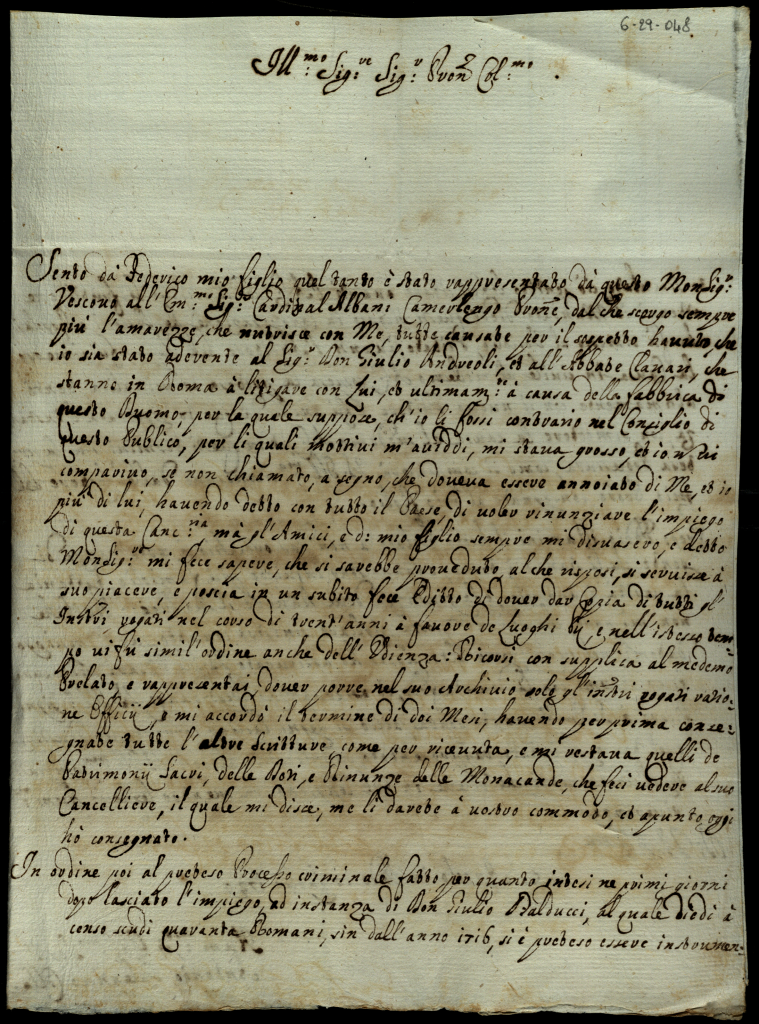 6-29-048
Ill:mo Sig:re Sig:r Pron Col:mo
Sento da Federico mio figlio quel tanto è stato rappresentato da questo MonSig:r
Vescovo all'Em:mo Sig:r Cardinal Albani Camerlengo Prone, dal che scorgo sempre
più l'amarezze, che nutrisce con Me, tutte causate per il sospetto havuto, che
io sia stato aderente al Sig:r Don Giulio Andreoli, et all'Abbate Clavari, che
stanno in Roma à litigare con Lui, et ultimam:te à causa della fabbrica di
questo Duomo, per la quale suppose, ch'io li fossi contrario nel Consiglio di
questo Publico, per li quali mottivi m'aviddi, mi stava grosso, et io
comparivo, se non chiamato, a segno, che doveva essere annoiato di Me, et io
più di lui, havendo detto con tutto il Paese, di voler rinunziare l'impiego
di questa Canc:ria mà gl'Amici, e d: mio figlio sempre mi disuasero, e detto
MonSig:re mi fece sapere, che si sarebbe proveduto, al che risposi, si servisse à
suo piacere, e poscia in un subito fece Editto di dover dar Copia di tutti gl'
Instri rogati nel corso di trent'anni à favore de Luoghi Pij, e nell'istesso tem=
po vi fù simil'ordine anche dell'Udienza: Ricorsi con supplica al medemo
Prelato, e rappresentai, dover porre nel suo Archivio solo gl'instri rogati ratio=
ne Officij, e mi accordò il termine di doi Mesi, havendo per prima conse=
gnate tutte l'altre scritture, come per ricevuta, e mi restava quelli de
Patrimonij Sacri, delle Doti, e Rinunze delle Monacande, che feci vedere al suo
Cancelliere, il quale mi disse, me li darete à vostro commodo, et apunto oggi
hò consegnato.
In ordine poi al preteso Processo criminale fatto per quanto intesi ne primi giorni
dopo lasciato l'impiego, ad instanza di Don Giulio Balducci, al quale diedi à
censo scudi quaranta Romani, sin dall'anno 1716, si è preteso essere instrumen=